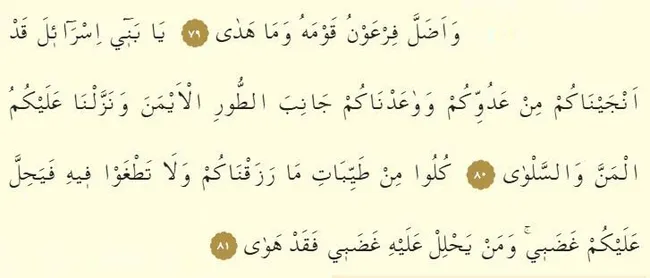 وَاَضَلَّ فِرْعَوْنُ قَوْمَهُ وَمَا هَدٰى ﴿٧٩﴾ يَا بَنٖٓي اِسْرَٓائٖلَ قَدْ
اَنْجَيْنَاكُمْ مِنْ عَدُوِّكُمْ وَوٰعَدْنَاكُمْ جَانِبَ الطُّورِ الْاَيْمَنَ وَنَزَّلْنَا عَلَيْكُمُ
الْمَنَّ وَالسَّلْوٰى ﴿٨٠﴾ كُلُوا مِنْ طَيِّبَاتِ مَا رَزَقْنَاكُمْ وَلَا تَطْغَوْا فٖيهِ فَيَحِلَّ
عَلَيْكُمْ غَضَبٖيۚ وَمَنْ يَحْلِلْ عَلَيْهِ غَضَبٖي فَقَدْ هَوٰى ﴿٨١﴾